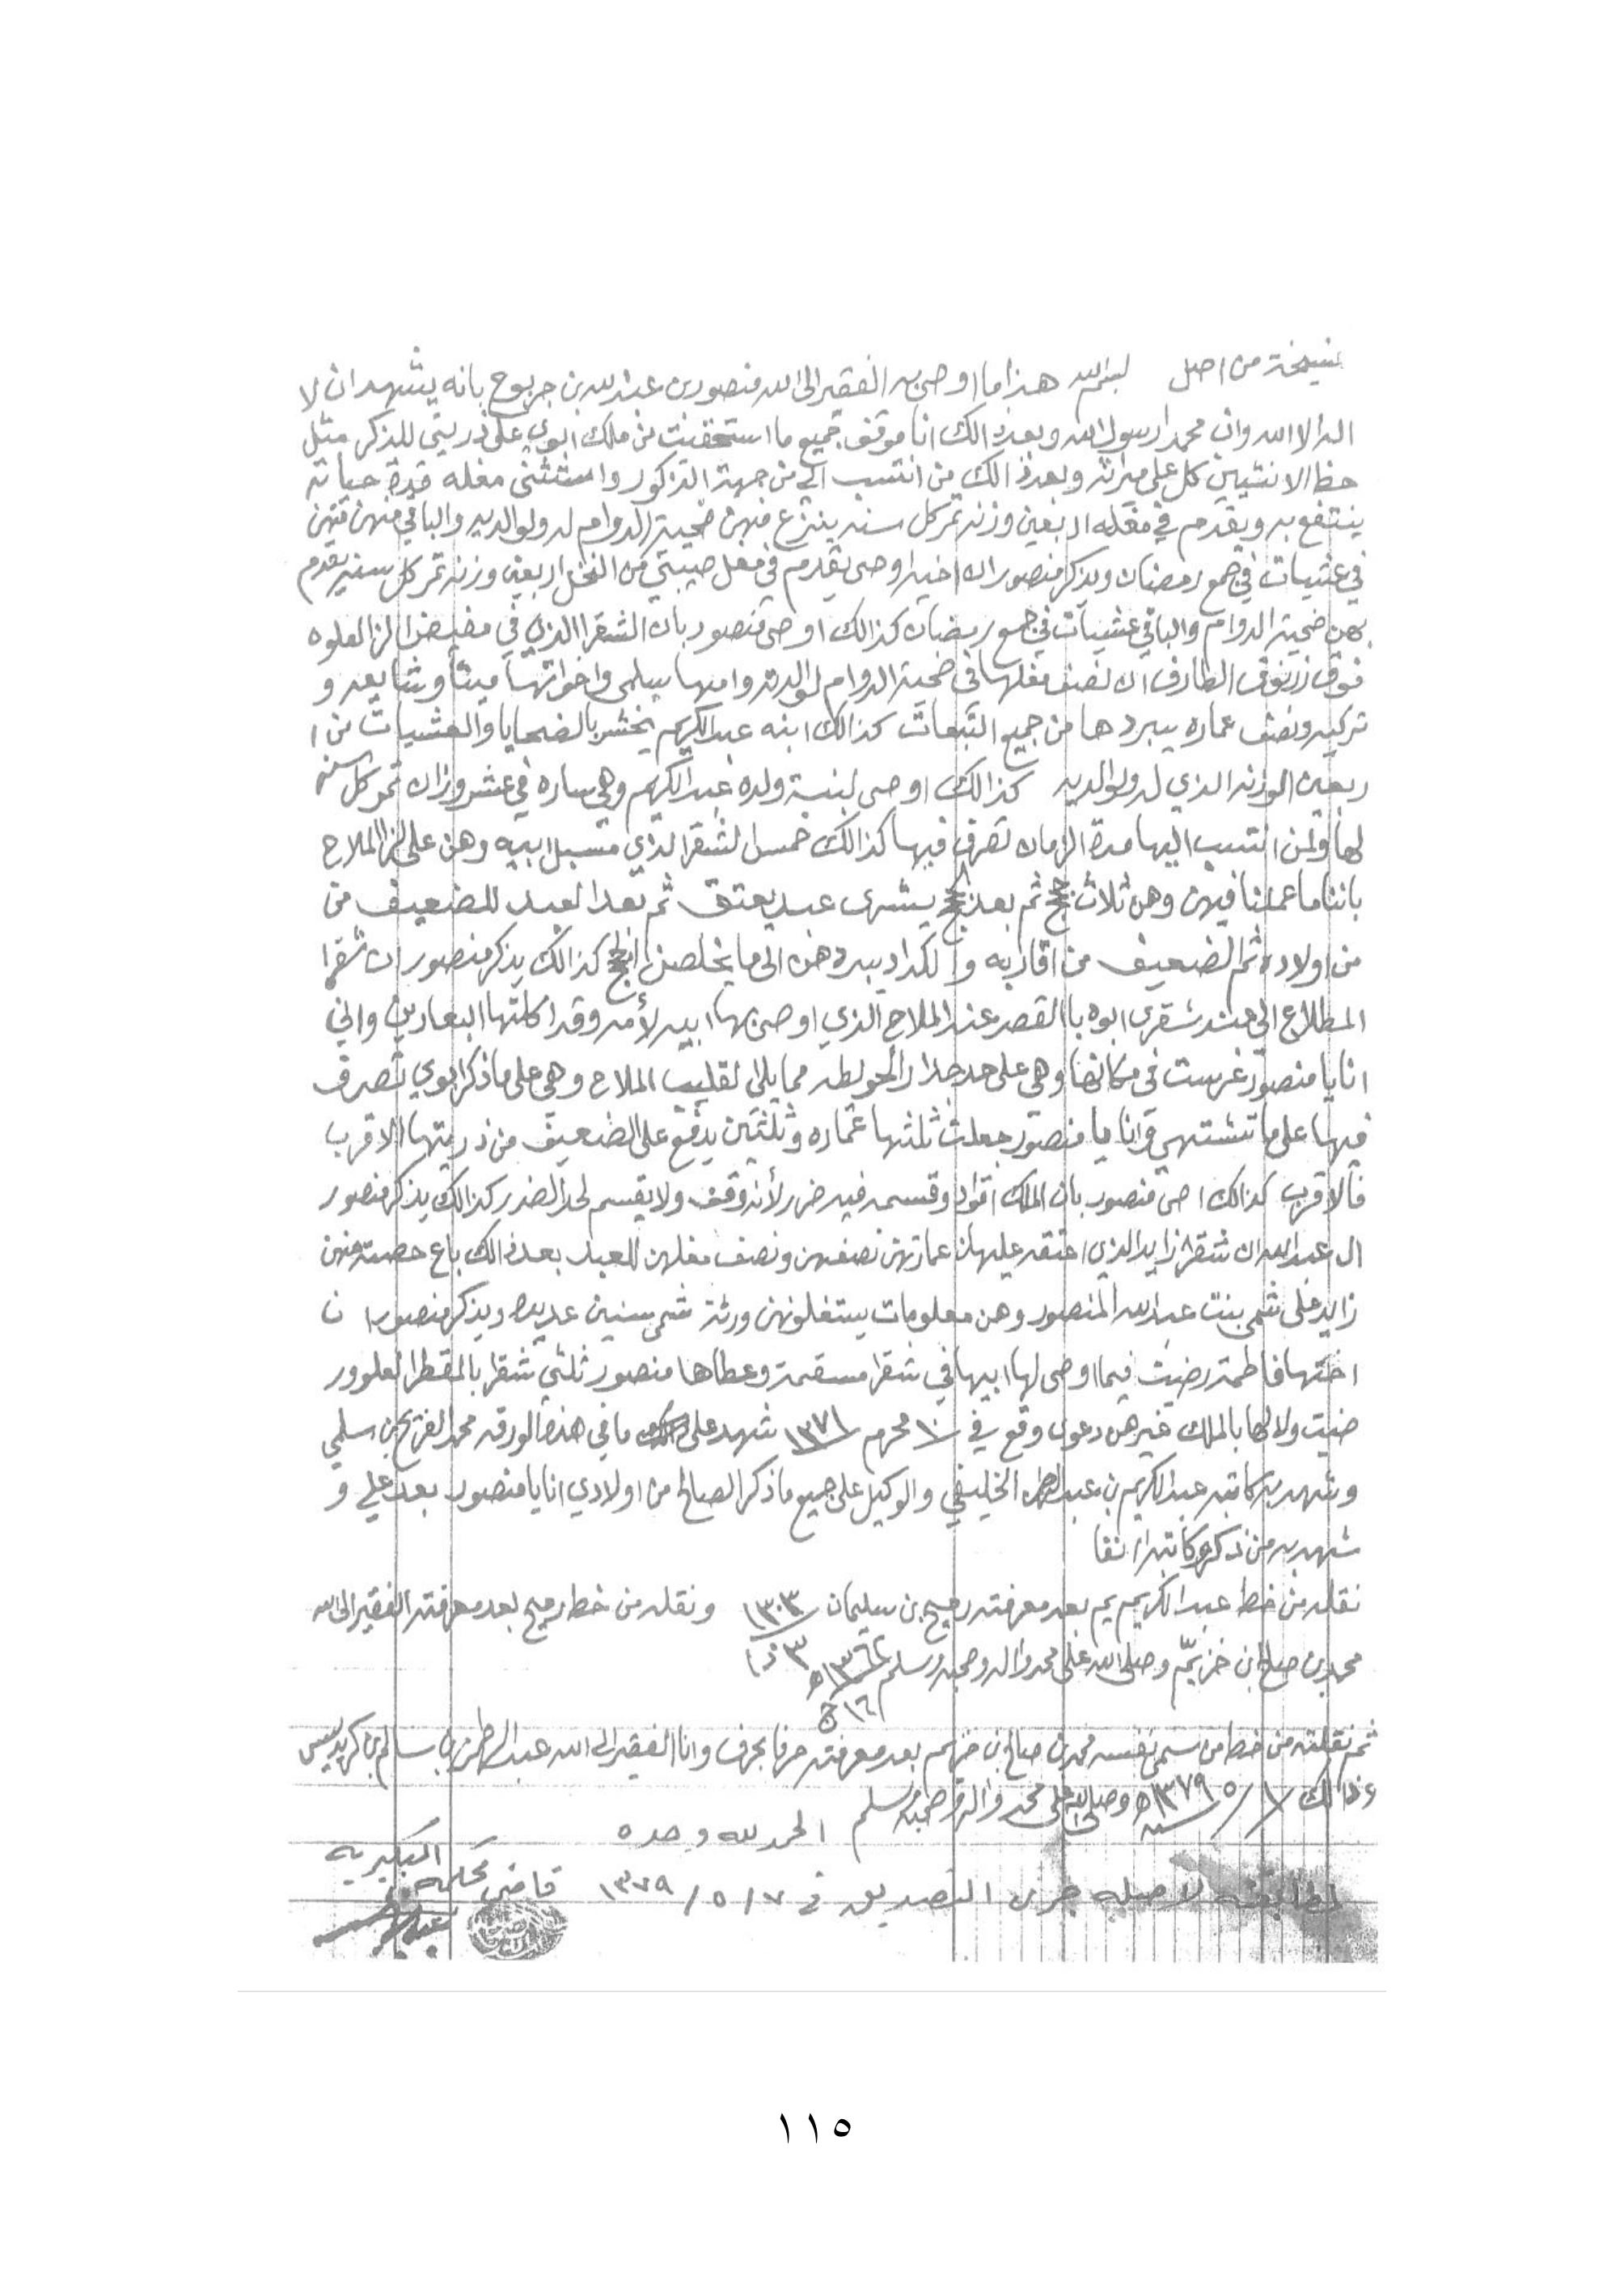 نسخة من اصل بسم الله هذا ما اوصى به الفقير الى الله منصور بن عبدالله بن جربوع بانه يشهد ان لا
اله الا الله وان محمدا رسول الله وبعد ذالك انا موقف جميع ما استحقيت من ملك ابوي على ذريتي للذكر مثل
حظ الانثيين كل على ميراثه وبعد ذالك من انتسب الي من جهة الذكور واستثنى مغله مدة حياته
ينتفع به ويقدم في مغله اربعين وزنه تمر كل سنه ينزع منهن ضحية الدوام له ولوالديه والباقي منهن
في عشيات في جمع رمضان ويذكر منصور ان اوصى يقدم في مغل صيبتي من النخل اربعين وزنه تمر كل سنه يقدم
بهن ضحية الدوام والباقي عشيات في جمع رمضان كذالك اوصى منصور بان الشقرا الذي في العلوه
فوق الطارف ان نصف مغلها في ضحية الدوام لوالدته وامها سلمى واخواتها ميثا وشايعه و
تركيه ونصف عماره يبردها من جميع التبعات كذالك ابنه عبدالكريم بالضحايا والعشيات من ا
ربعين الوزنه الذي له ولوالديه كذالك اوصى لبنية ولده عبدالكريم وهي ساره في عشر وزان تمر كل سنه
لها ولمن انتسب اليها مدة الزمان تصرف فيها كذالك خمس الشقر الذي مسبل ابيه وهن على الملاح
باننا ما عملنا فيهن وهن ثلاث حجج ثم بعد الحجج يشرى عبد يعتق ثم بعد العبد للضعيف من
من اولاده ثم الضعيف من اقاربه و يبرد هن الى ما يخلصن الحجج كذالك يذكر منصور ان شقرا
المطلاع الي عند شقرى ابوه بالقصر عند الملاح الذي اوصى بها ابيه لأمه وقد اكلتها البعارين واني
انا يا منصور غرست في مكانها وهي على حد جدار الحويطه مما يلي القليب الملاح وهي على ما ذكر ابوي تصرف
فيها على ما تشتهي وانا يا منصور جعلت ثلثها عماره وثلثين يدفع على الضعيف من ذريتها الاقرب
فالاقرب كذالك اصى منصور بان الملك وقسمه فيه ضرر لأنه وقف ولا يقسم لحد الضرر كذالك يذكر منصور
ال عبدالله ان شقر زايد الذي اعتقه عليهن عمارتهن نصفهن ونصف مغلهن للعبد بعد ذالك باع حصته منهن
زايد على شمى بنت عبدالله المنصور وهن معلومات يستغلونهن ورثة شمى سنين عديده ويذكر منصور ن
اختها فاطمة رضيت فيما اوصى لها ابيها في شقرا وعطاها منصور ثلثي شقرا العلو ور
ضيت ولا لها بالملك غيرهن دعوى وقع في ١٠ محرم ١٣٧١ شهد على ما في هذه الورقه محمد بن سلمي
وشهد به كاتبه عبدالكريم بن عبدالله الخليفي والوكيل على جميع ما ذكر الصالح من اولادي انا يا منصور بعد علي و
شهد به من ذكر وكاتبه انفا
نقله من خط عبدالكريم بعد معرفته رميح بن سليمان ١٣٠٣ ونقله من خط رميح بعد معرفته الفقير الى الله
محمد بن صالح بن خزيّم وصلى الله على محمد واله وصحبه وسلم ١٣٦٦
ثم نقلته من خط من سمى نفسه محمد بن صالح بن خزيم بعد معرفته حرفا بحرف وانا الفقير الى الله عبدالرحمن بن سالم بن كريديس
وذالك ١/٥/١٣٧٩ه وصلى الله على محمد واله وصحبه وسلم
الحمد لله وحده
لمطابقته لاصله جرى التصديق في ٧/٥/١٣٧٩ قاضي محكمة البكيرية
١١٥